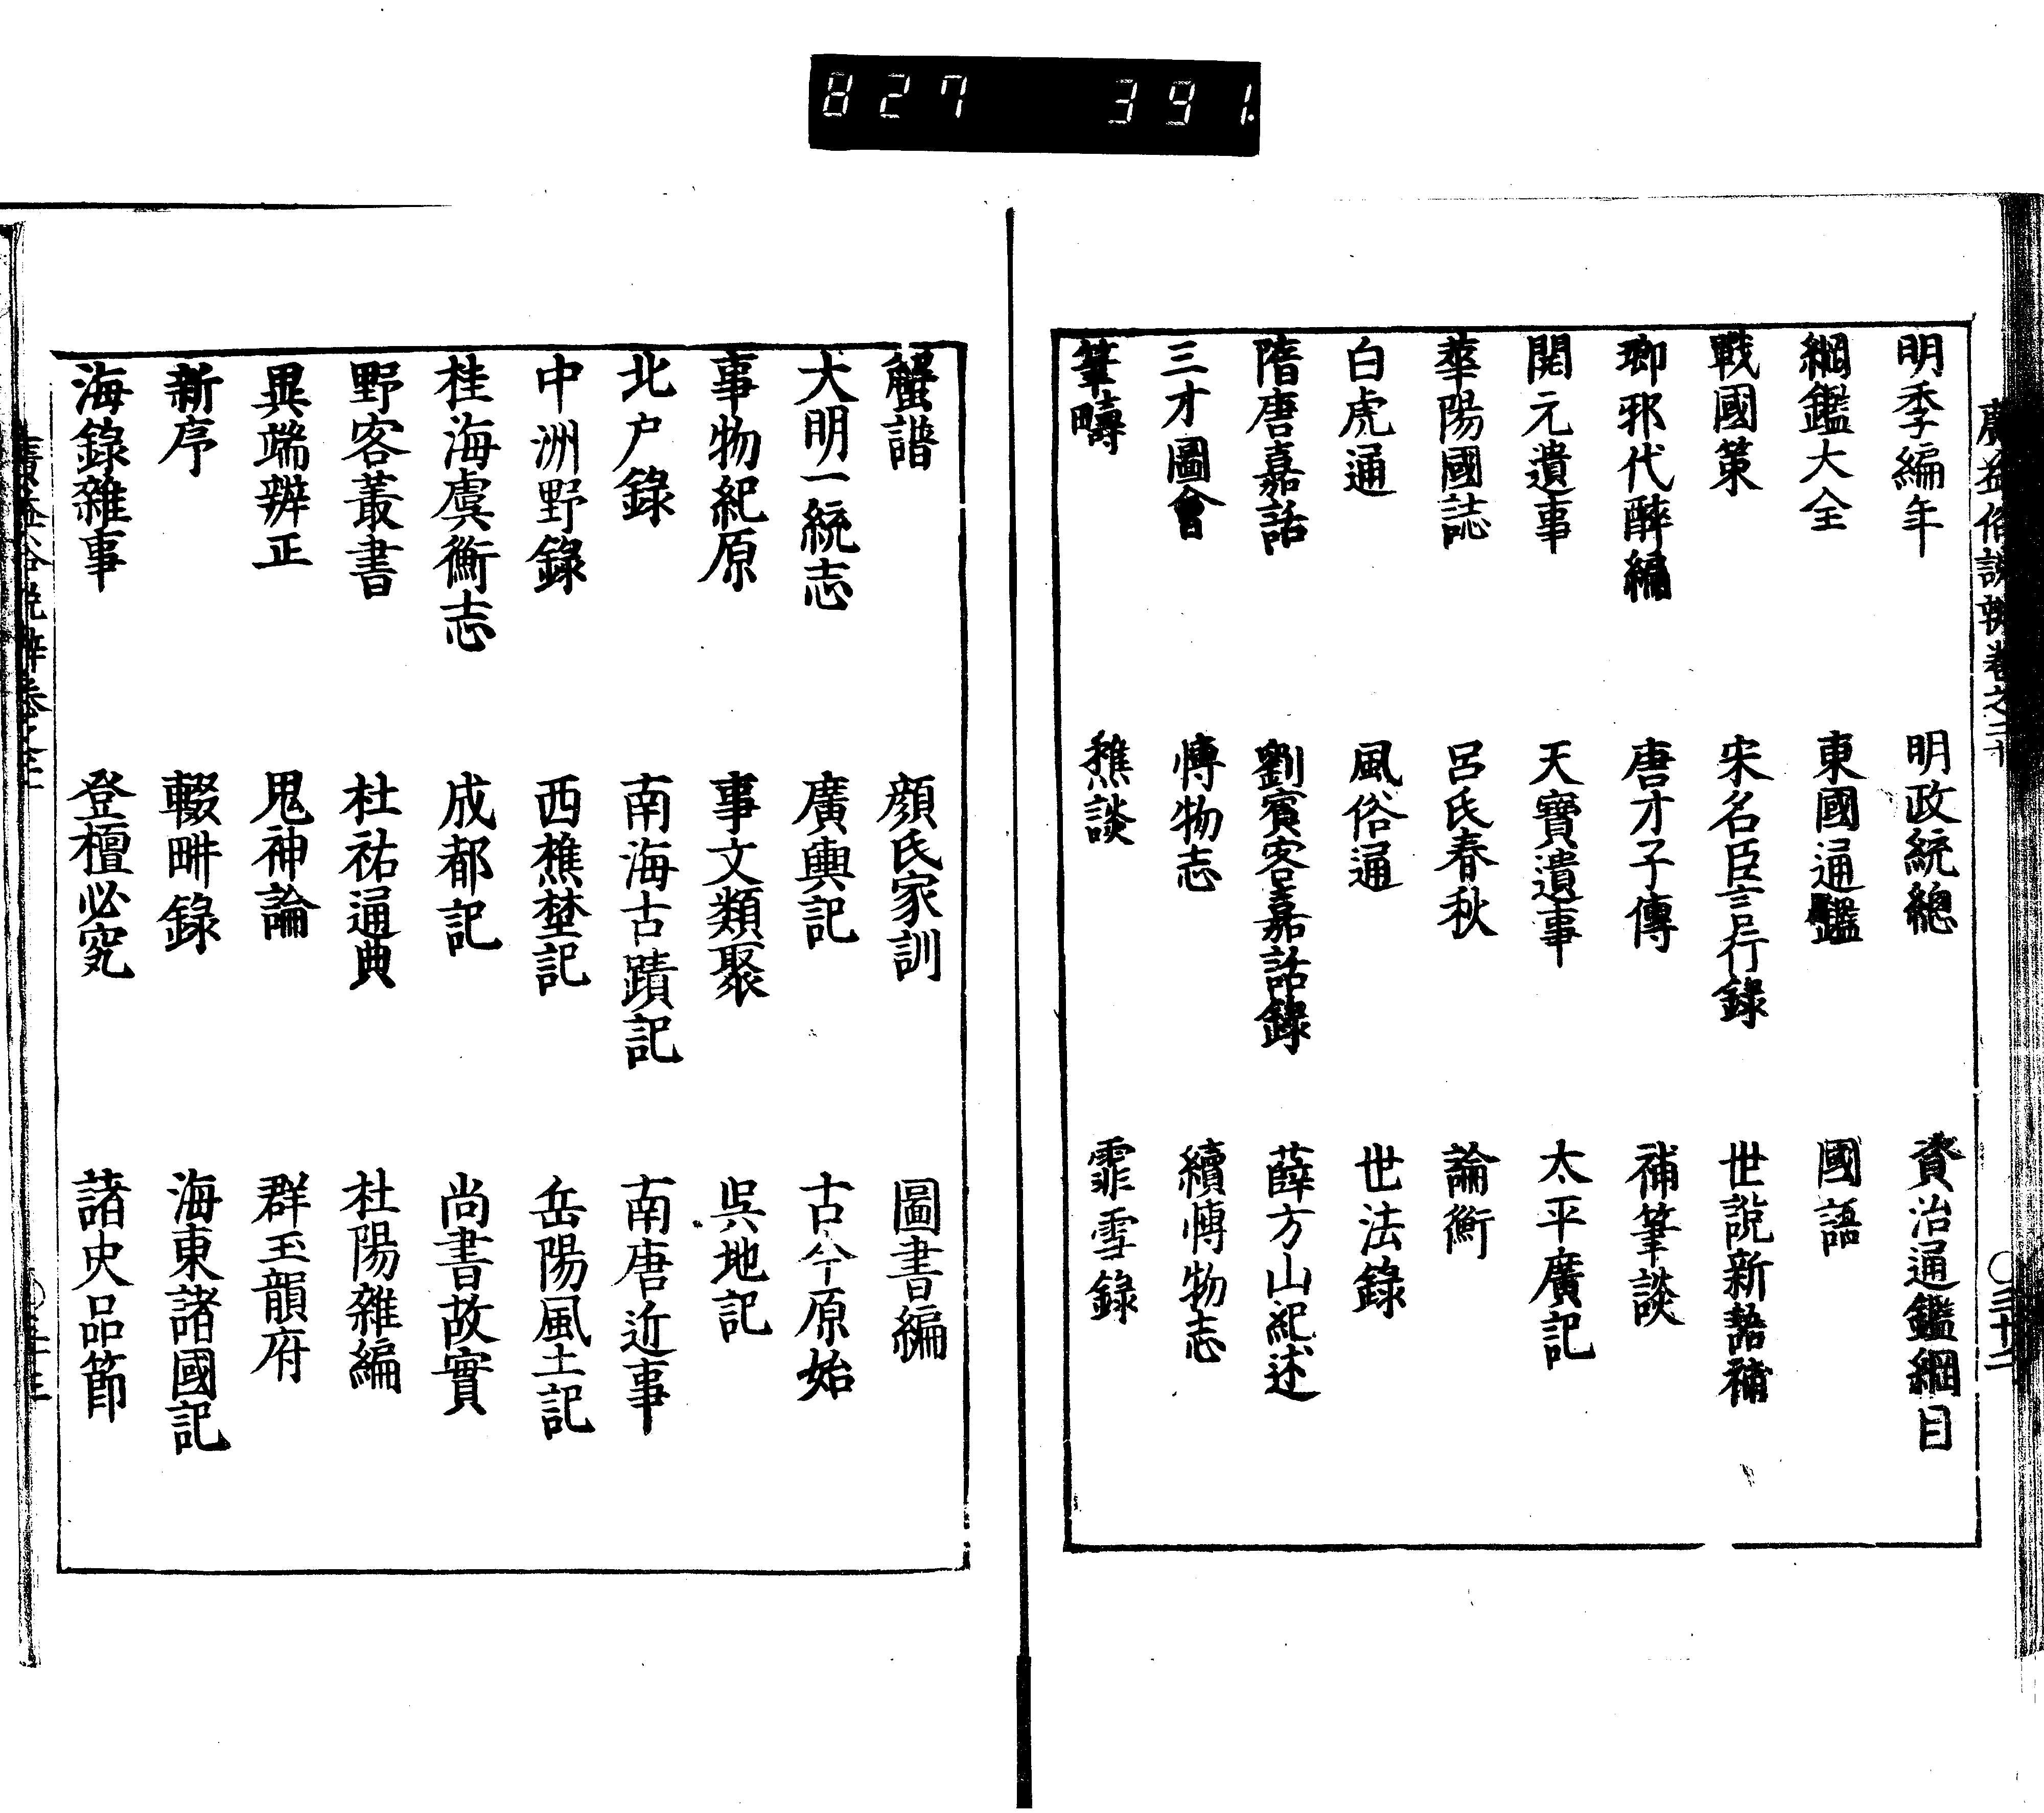 827 391.
明季編年 明政統總 資治通鑑綱目
綱鑑大全 東國通鑑 國語
戰國策 宋名臣言行錄 世說新語補
瑯邪代醉編 唐才子傳 補筆談
開元遺事 天寶遺事 太平廣記
華陽國誌 呂氏春秋 論衡
白虎通 風俗通 世法錄
隋唐嘉話 劉賓客嘉話錄 薛方山紀述
三才圖會 博物志 續博物志
筆疇 樵談 霏雪錄
蟹譜 顏氏家訓 圖書編
大明一統志 廣輿記 古今原始
事物紀原 事文類聚 吳地記
北户錄 南海古蹟記 南唐近事
中洲野錄 西樵埜記 岳陽風土記
桂海虞衡志 成都記 尚書故實
野客叢書 杜祐通典 杜陽雜編
異端辨正 鬼神論 群玉韻府
新序 輟畊錄 海東諸國記
海錄雜事 登檀必究 諸史品節